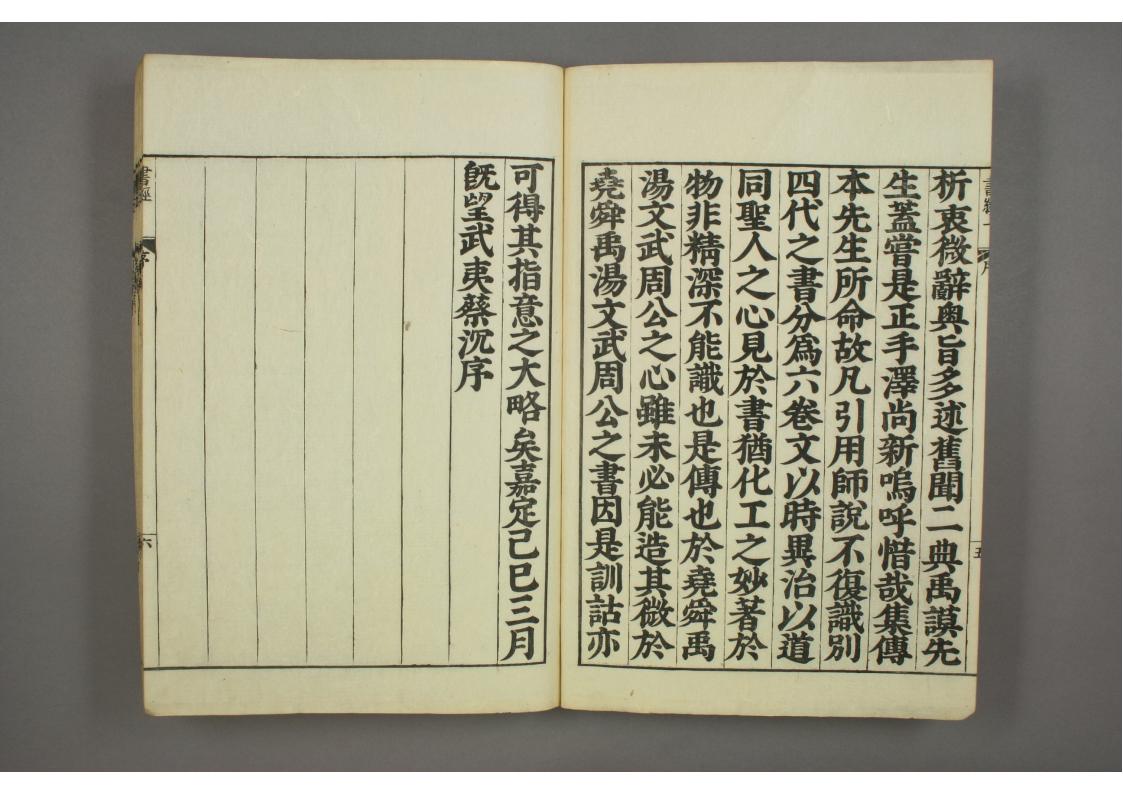 析衷微辭奥旨多述舊聞二典禹謨先
生蓋嘗是正手澤尚新嗚呼惜哉集傳
本先生所命故凡引用師說不復識別
四代之書分爲六卷文以時異治以道
同聖人之心見於書猶化工之妙著於
物非精深不能識也是傳也於堯舜禹
湯文武周公之心雖未必能造其微於
堯舜禹湯文武周公之書因是訓詁亦
五
可得其指意之大略矣嘉定己巳三月
旣望武夷蔡沉序
書經
序
六